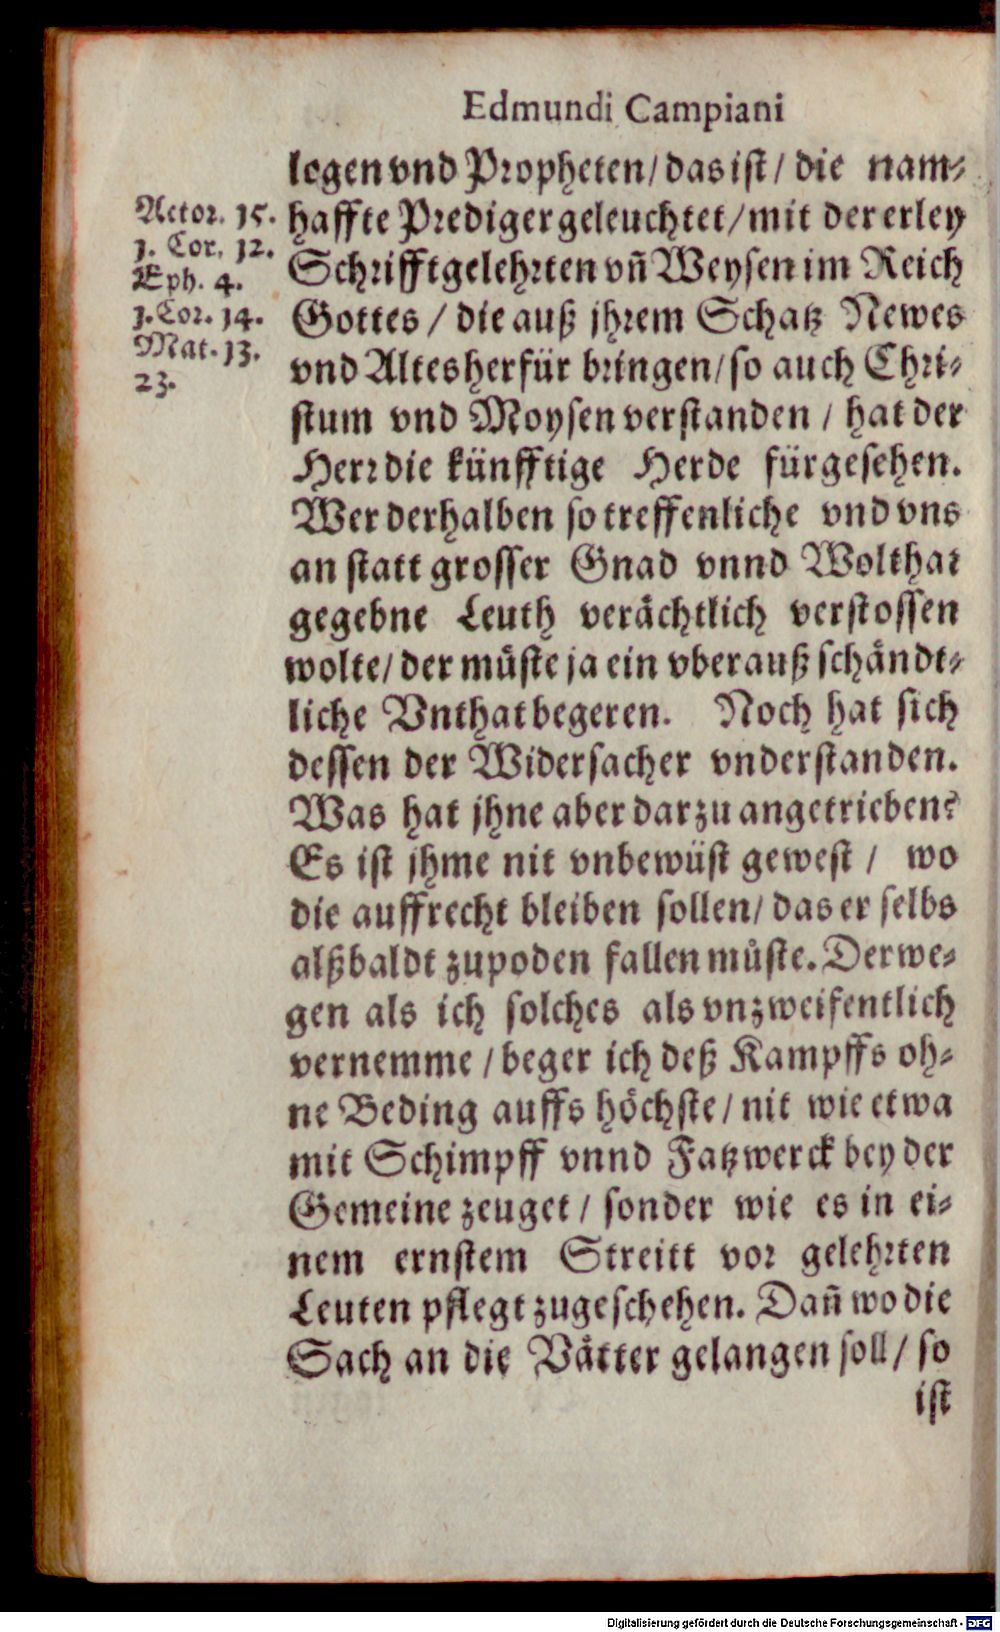 Edmundi Campiani
legen vnd Propheten/ das ist/ die nam⸗
haffte Prediger geleuchtet/ mit dererley
Schrifftgelehrten vñ Weysen im Reich
Gottes / die auß jhrem Schatz Newes
vnd Altes herfür bringen/ so auch Chri⸗
stum vnd Moysen verstanden / hat der
Herr die künfftige Herde fürgesehen.
Wer derhalben so treffenliche vnd vns
an statt grosser Gnad vnnd Wolthat
gegebne Leuth verächtlich verstossen
wolte/ der müste ja ein vberauß schändt⸗
liche Vnthat begeren. Noch hat sich
dessen der Widersacher vnderstanden.
Was hat jhne aber darzu angetrieben?
Es ist jhme nit vnbewüst gewest / wo
die auffrecht bleiben sollen/ das er selbs
alßbaldt zupoden fallen müste. Derwe⸗
gen als ich solches als vnzweifentlich
vernemme / beger ich deß Kampffs oh⸗
ne Beding auffs höchste/ nit wie etwa
mit Schimpff vnnd Fatzwerck bey der
Gemeine zeuget / sonder wie es in ei⸗
nem ernstem Streitt vor gelehrten
Leuten pflegt zugeschehen. Dañ wo die
Sach an die Vätter gelangen soll/ so
ist
Actor. 15.
1. Cor. 12.
Eph. 4.
1. Cor. 14.
Mat. 13.
23.
Digitalisierung gefördert durch die Deutsche Forschungsgemeinschaft - DFG